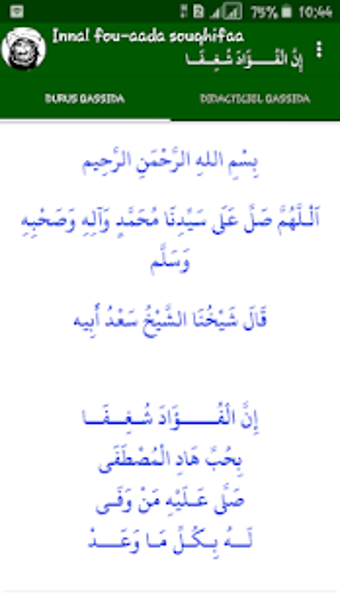 75% 10:44
Innal fou-aada soughifaa
إِنَّ الْفُـــؤَادَ شُـغِـفَـا
DURUS QASSIDA
DIDACTICIEL QASSIDA
بِسْمِ اللهِ الرَّحْمَنِ الرَّحِيم
اَلْـلَّهُمَّ صَلِّ عَلَى سَيِّدِنَا مُحَمَّدٍ وَآلِهِ وَصَحْبِهِ
وَسَلَّم
قَالَ شَيْخُنَا الشَّيْخُ سَعْدُ أَبِيه
إِنَّ الْفُـــــؤَادَ شُـغِــفَــا
بِحُبِّ هَادِ الْمُصْطَفَى
صَلَّى عَـلَيْهِ مَنْ وَفَـى
لَــهُ بِـكُـلِّ مَـا وَعَــدْ